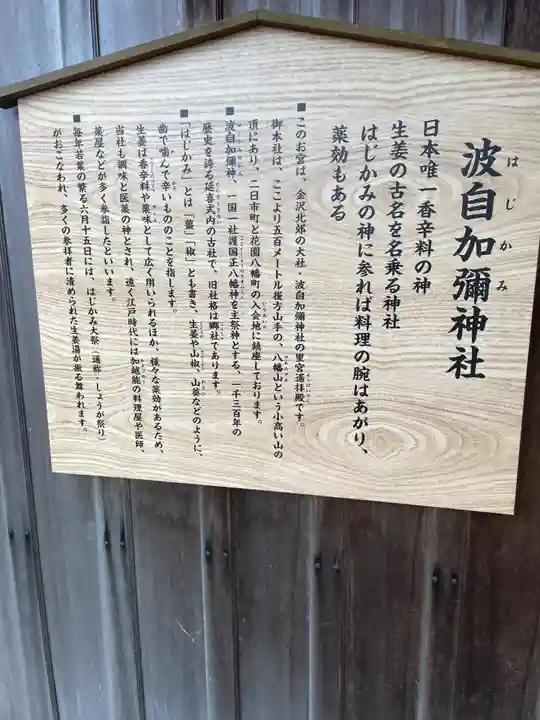 波自加彌神社
はじかみ
日本唯一香辛料の神
生姜の古名を名乗る神社
はじかみの神に参れば料理の腕はあがり、
薬効もある
■このお宮は、金沢北郊の大社・波自加彌神社の里宮遥拝殿です。
御本社は、ここより五百メートル後方山手の、八幡山という小高い山の
頂にあり、二日市町と花園八幡町の入会地に鎮座しております。
■波自加彌神、一国一社護国正八幡神を主祭神とする、一千三百年の
歴史を誇る延喜式内の古社で、旧社格は郷社であります。
■「はじかみ」とは「薑」「椒」とも書き、生姜や山椒、山葵などのように、
歯で噛んで辛いもののことを指します。
生姜は香辛料や薬味として広く用いられるほか、様々な薬効があるため、
当社も調味と医薬の神とされ、遠く江戸時代には加越能の料理屋や医師、
薬屋などが多く参詣したといいます。
■毎年若葉の繁る六月十五日には、はじかみ大祭（通称・しょうが祭り）
がおこなわれ、多くの参拝者に清められた生姜湯が振る舞われます。